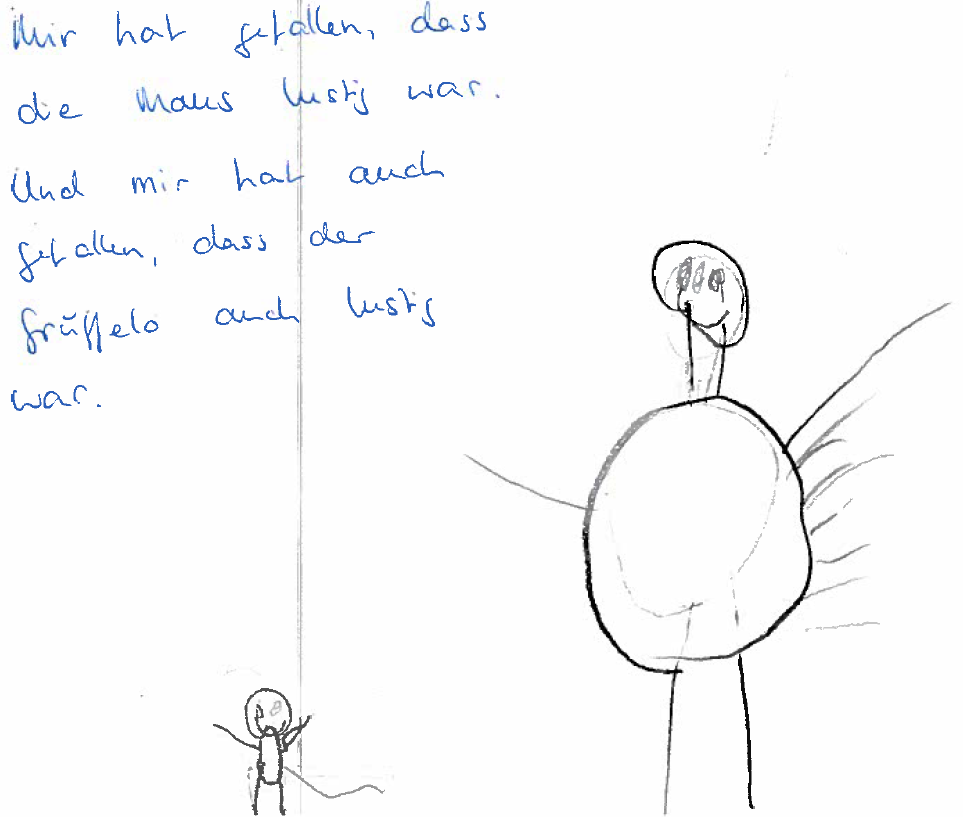 Mir hat gefallen, dass
die Maus lustig war.
Und mir hat auch
gefallen, dass der
Grüffelo auch lustig
war.